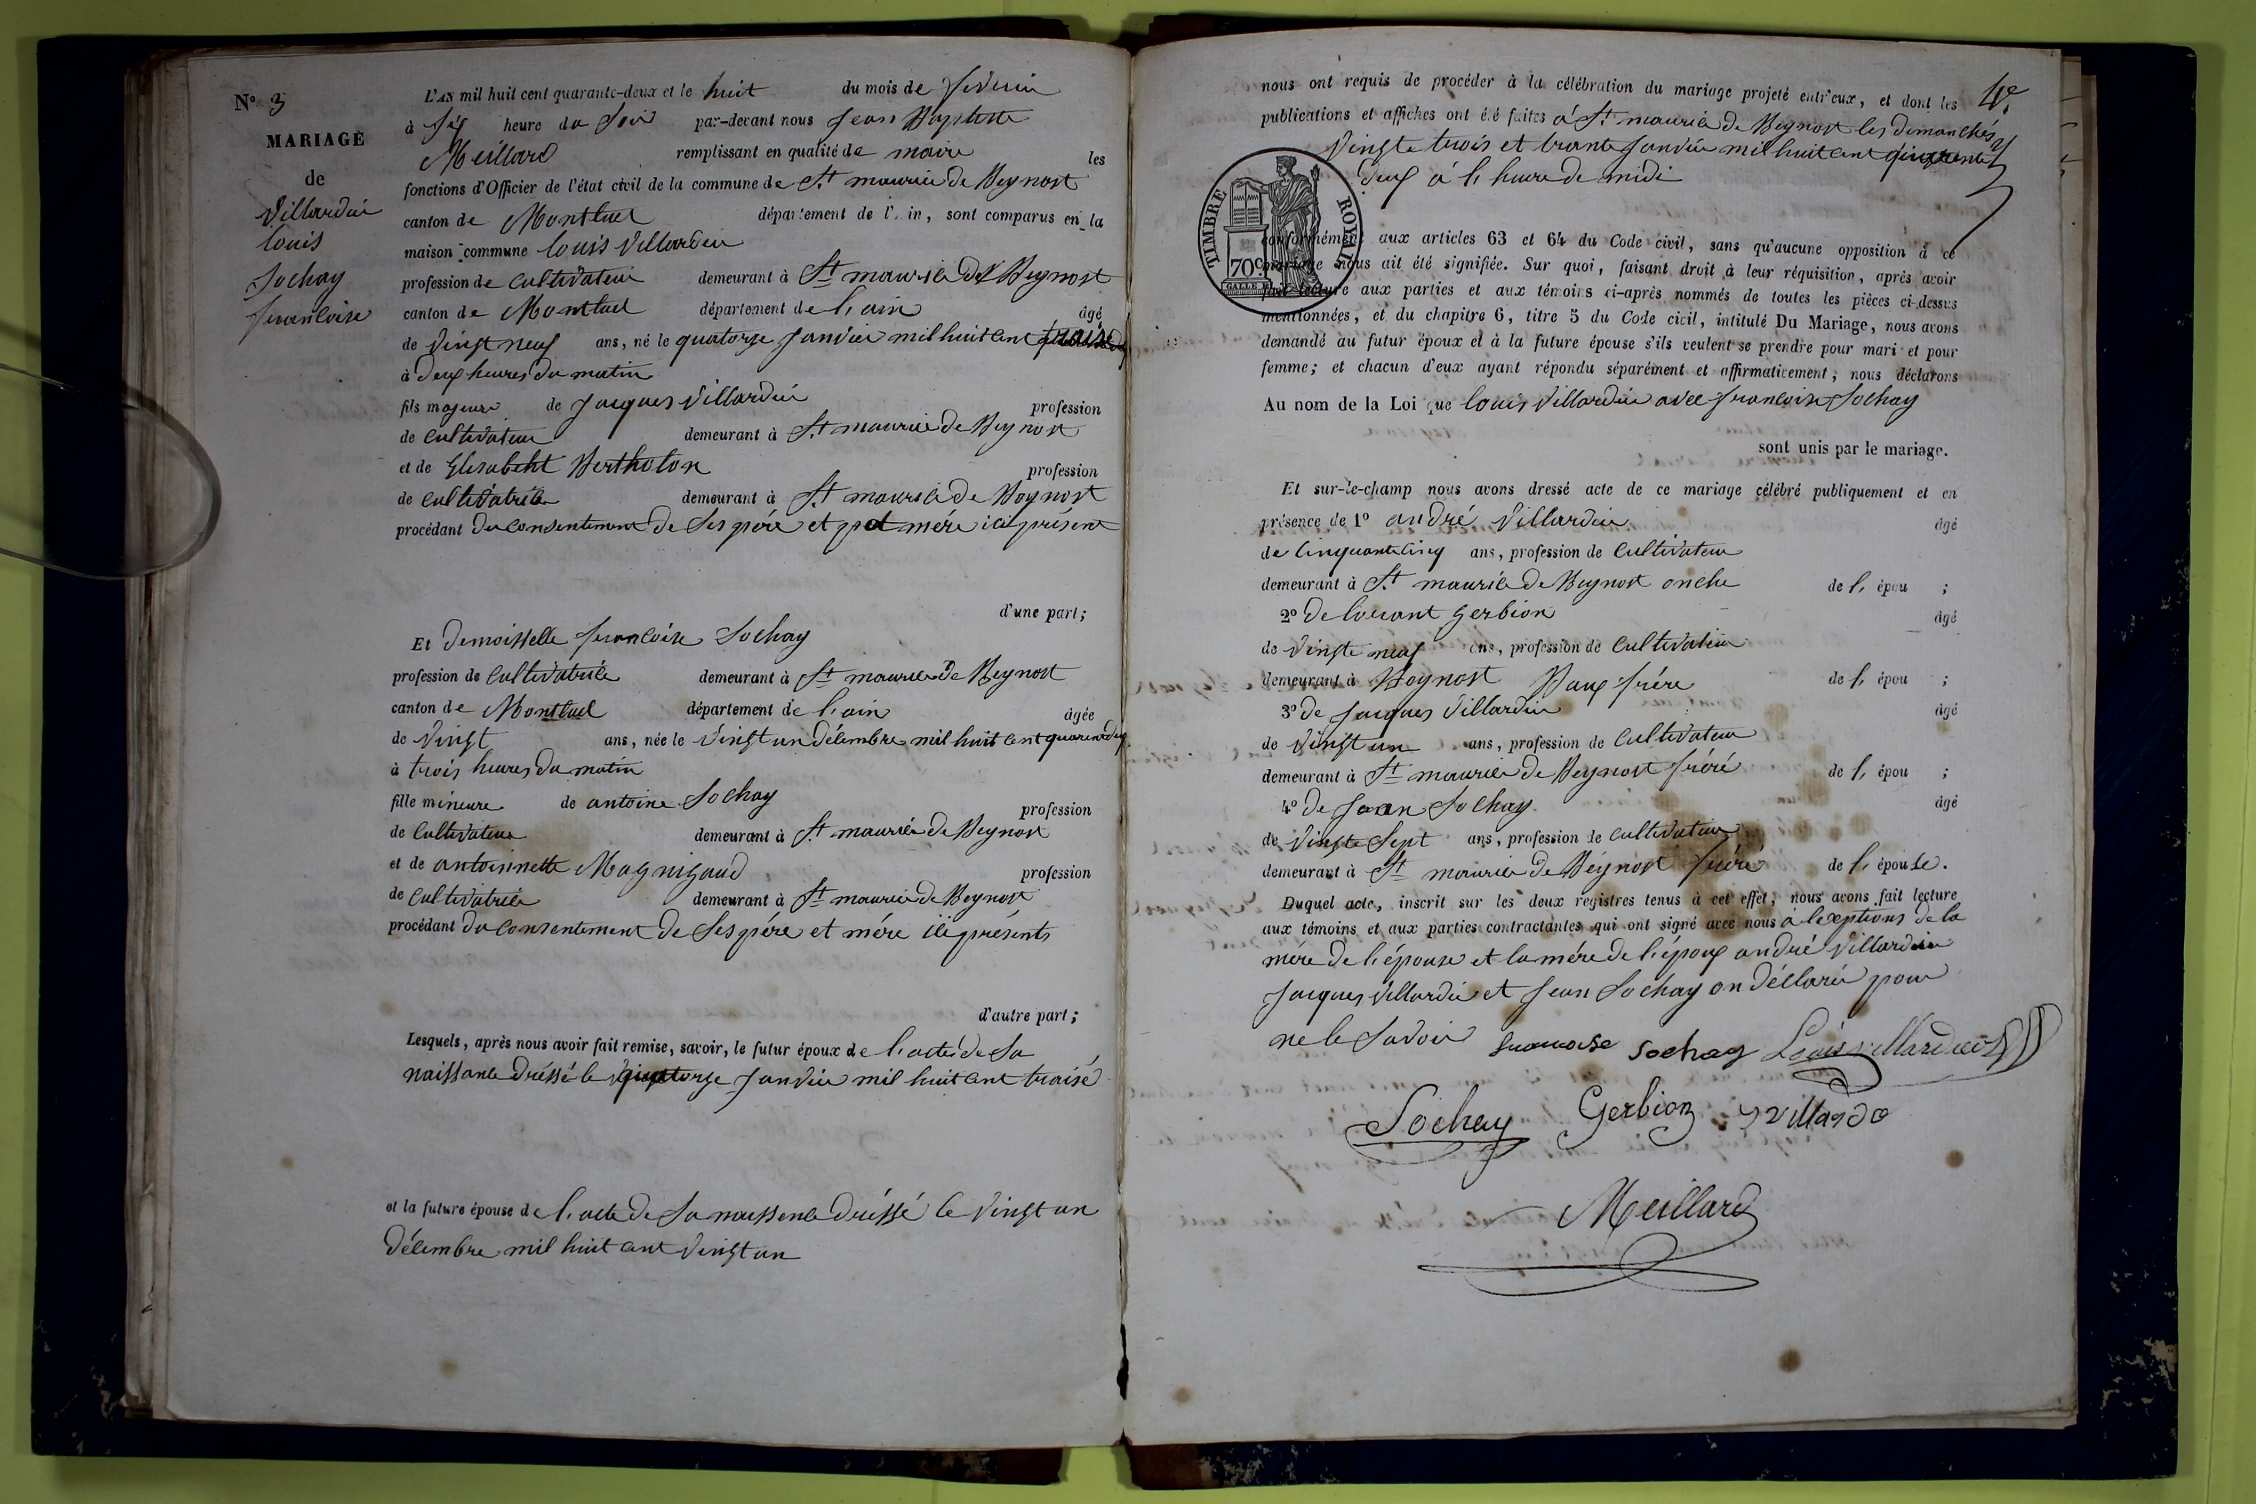 N° 3
MARIAGE
de
Villardin
louis
Sochay
francoise
L'AN mil huit cent quarante-deux et le huit du mois de fevrier
à six heure du soir par-devant nous Jean Baptiste
Meillard remplissant en qualité de maire les
fonctions d'Officier de l'état civil de la commune de St maurice de Beynost
canton de Montluel département de l'Ain, sont comparus en la
maison commune louis Villardin
profession de cultivateur demeurant à St maurice de Beynost
canton de Montluel département de l'ain âgé
de vingt neuf ans, né le quatorze janvier mil huit cent traise
à deux heures du matin
fils majeur de jacques Villardin profession
de cultivateur demeurant à St maurice de Beynost
et de Elisabeht Bertholon profession
de cultivatrice demeurant à St maurice de Beynost
procédant du consentement de ses père et mère ici présent
d'une part;
Et demoisselle francoise Sochay
profession de cultivatrice demeurant à St maurice de Beynost
canton de Montluel département de l'ain âgée
de vingt ans, née le vingt un décembre mil huit cent
à trois heures du matin
fille mineure de antoine Sochay profession
de cultivateur demeurant à St maurice de Beynost
et de antoinnette Magnigaud profession
de cultivatrice demeurant à St maurice de Beynost
procédant du consentement de ses père et mère ici présents
d'autre part;
Lesquels, après nous avoir fait remise, savoir, le futur époux de l'acte de sa
naissance dréssé le quatorze janvier mil huit cent traise
et la future épouse de l'acte de sa naissence dréssé le vingt un
décembre mil huit cent vingt un
nous ont requis de procéder à la célébration du mariage projeté entr'eux, et dont les
publications et affiches ont été faites à St maurice de Beynost les dimanches
vingte trois et trante janvier mil huit cent
deux à l'heure de midi
TIMBRE ROYAL
70c
conformément aux articles 63 et 64 du Code civil, sans qu'aucune opposition à ce
mariage nous ait été signifiée. Sur quoi, faisant droit à leur réquisition, après avoir
fait lecture aux parties et aux témoins ci-après nommés de toutes les pièces ci-dessus
mentionnées, et du chapitre 6, titre 5 du Code civil, intitulé Du Mariage, nous avons
demandé au futur époux et à la future épouse s'ils veulent se prendre pour mari et pour
femme; et chacun d'eux ayant répondu séparément et affirmativement, nous déclarons
Au nom de la Loi que louis Villardin avec francoise Sochay
sont unis par le mariage.
Et sur-le-champ nous avons dressé acte de ce mariage célébré publiquement et en
présence de 1° andré Villardin âgé
de cinquante cinq ans, profession de cultivateur
demeurant à St maurice de Beynost oncle de l'épou ;
2° de Gerbion âgé
de vingte neuf ans, profession de cultivateur
demeurant à Beynost Baux frère de l'épou ;
3° de jacques Villardin âgé
de vingt un ans, profession de cultivateur
demeurant à St maurice de Beynost fréré de l'épou ;
4° de Jean Sochay âgé
de vingte sept ans, profession de cultivateur
demeurant à St maurice de Beynost frere de l'épouse.
Duquel acte, inscrit sur les deux registres tenus à cet effet, nous avons fait lecture
aux témoins et aux parties contractantes qui ont signé avec nous à lexeptions de la
mére de l'épouse et la mére de l'époux andré Villardin
jacques Villardin et jean Sochay on déclaré pour
ne le savoir francoise Sochay Louis Villardin
Sochay Gerbion Villardo
Meillard